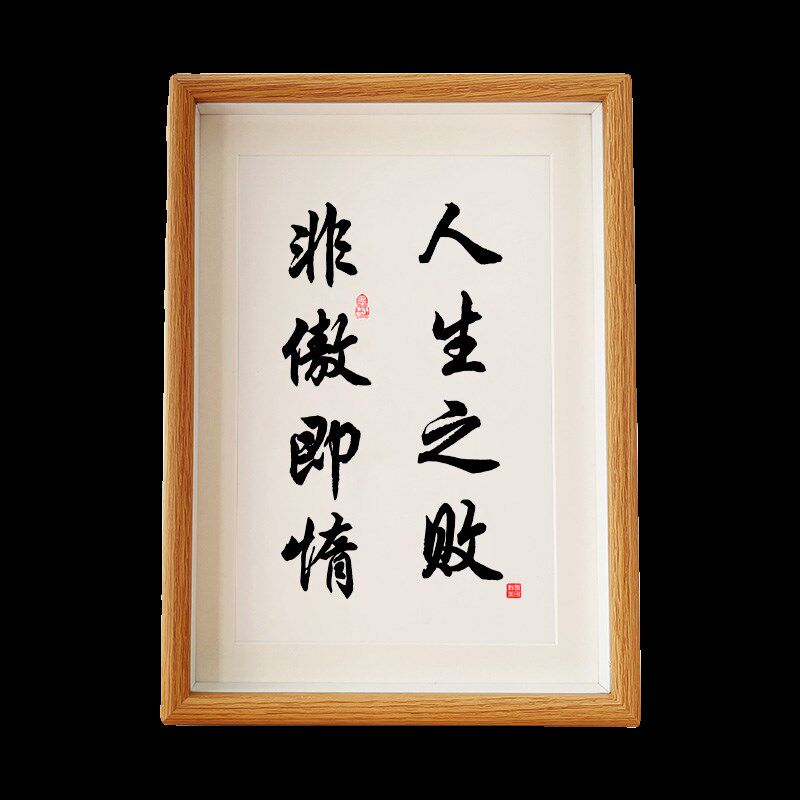 人生之败
非傲即惰